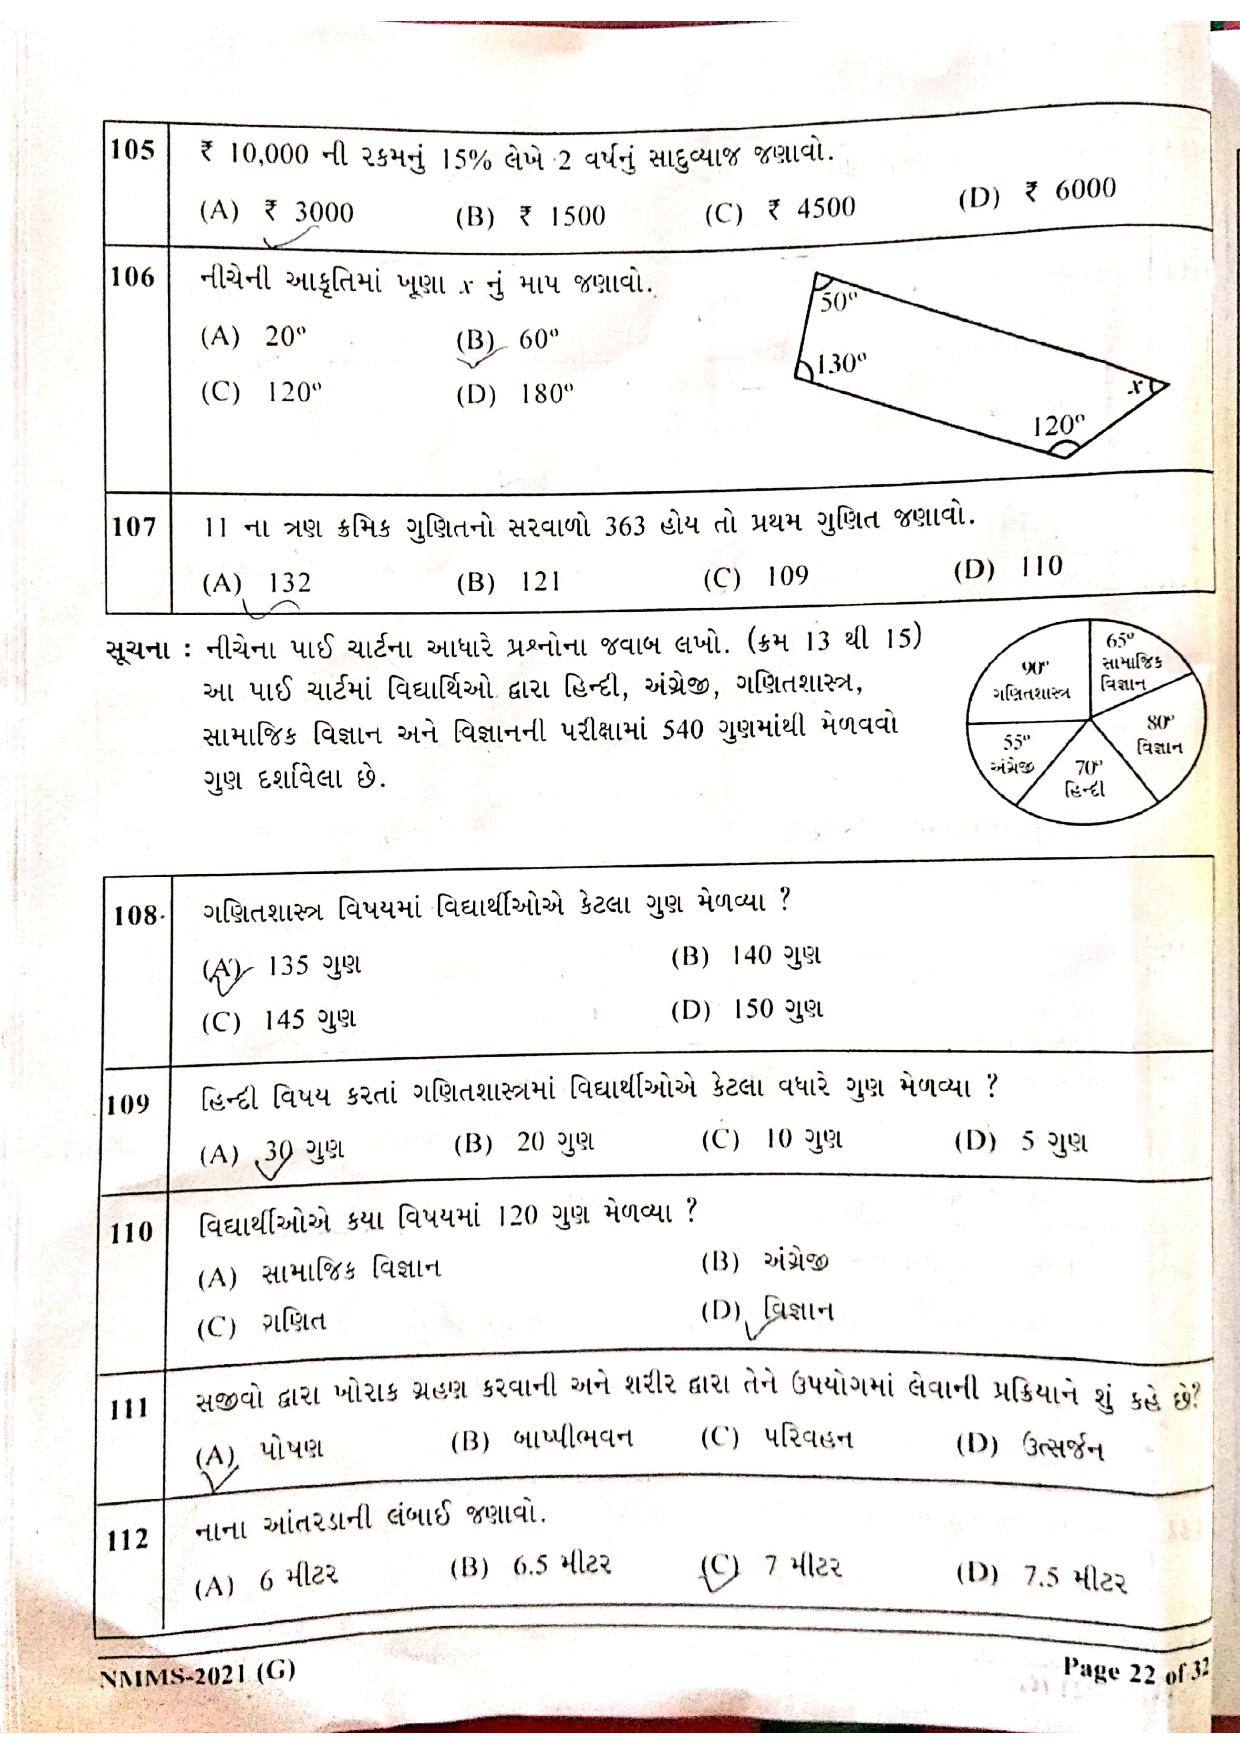 105 ₹ 10,000 ની રકમનું 15% લેખે 2 વર્ષનું સાદુવ્યાજ જણાવો.
(A) ₹ 3000 (B) ₹ 1500 (C) ₹ 4500 (D) ₹ 6000
106 નીચેની આકૃતિમાં ખૂણા x નું માપ જણાવો.
(A) 20° (B) 60°
(C) 120° (D) 180°
50°
130°
x
120°
107 11 ના ત્રણ ક્રમિક ગુણિતનો સરવાળો 363 હોય તો પ્રથમ ગુણિત જણાવો.
(A) 132 (B) 121 (C) 109 (D) 110
સૂચના : નીચેના પાઈ ચાર્ટના આધારે પ્રશ્નોના જવાબ લખો. (ક્રમ 13 થી 15)
આ પાઈ ચાર્ટમાં વિદ્યાર્થિઓ દ્વારા હિન્દી, અંગ્રેજી, ગણિતશાસ્ત્ર,
સામાજિક વિજ્ઞાન અને વિજ્ઞાનની પરીક્ષામાં 540 ગુણમાંથી મેળવવો
ગુણ દર્શાવેલા છે.
65°
સામાજિક
વિજ્ઞાન
90°
ગણિતશાસ્ત્ર
80°
વિજ્ઞાન
55°
અંગ્રેજી
70°
હિન્દી
108 ગણિતશાસ્ત્ર વિષયમાં વિદ્યાર્થીઓએ કેટલા ગુણ મેળવ્યા ?
(A) 135 ગુણ (B) 140 ગુણ
(C) 145 ગુણ (D) 150 ગુણ
109 હિન્દી વિષય કરતાં ગણિતશાસ્ત્રમાં વિદ્યાર્થીઓએ કેટલા વધારે ગુણ મેળવ્યા ?
(A) 30 ગુણ (B) 20 ગુણ (C) 10 ગુણ (D) 5 ગુણ
110 વિદ્યાર્થીઓએ કયા વિષયમાં 120 ગુણ મેળવ્યા ?
(A) સામાજિક વિજ્ઞાન (B) અંગ્રેજી
(C) ગણિત (D) વિજ્ઞાન
111 સજીવો દ્વારા ખોરાક ગ્રહણ કરવાની અને શરીર દ્વારા તેને ઉપયોગમાં લેવાની પ્રક્રિયાને શું કહે છે?
(A) પોષણ (B) બાષ્પીભવન (C) પરિવહન (D) ઉત્સર્જન
112 નાના આંતરડાની લંબાઈ જણાવો.
(A) 6 મીટર (B) 6.5 મીટર (C) 7 મીટર (D) 7.5 મીટર
NMMS-2021 (G) Page 22 of 32